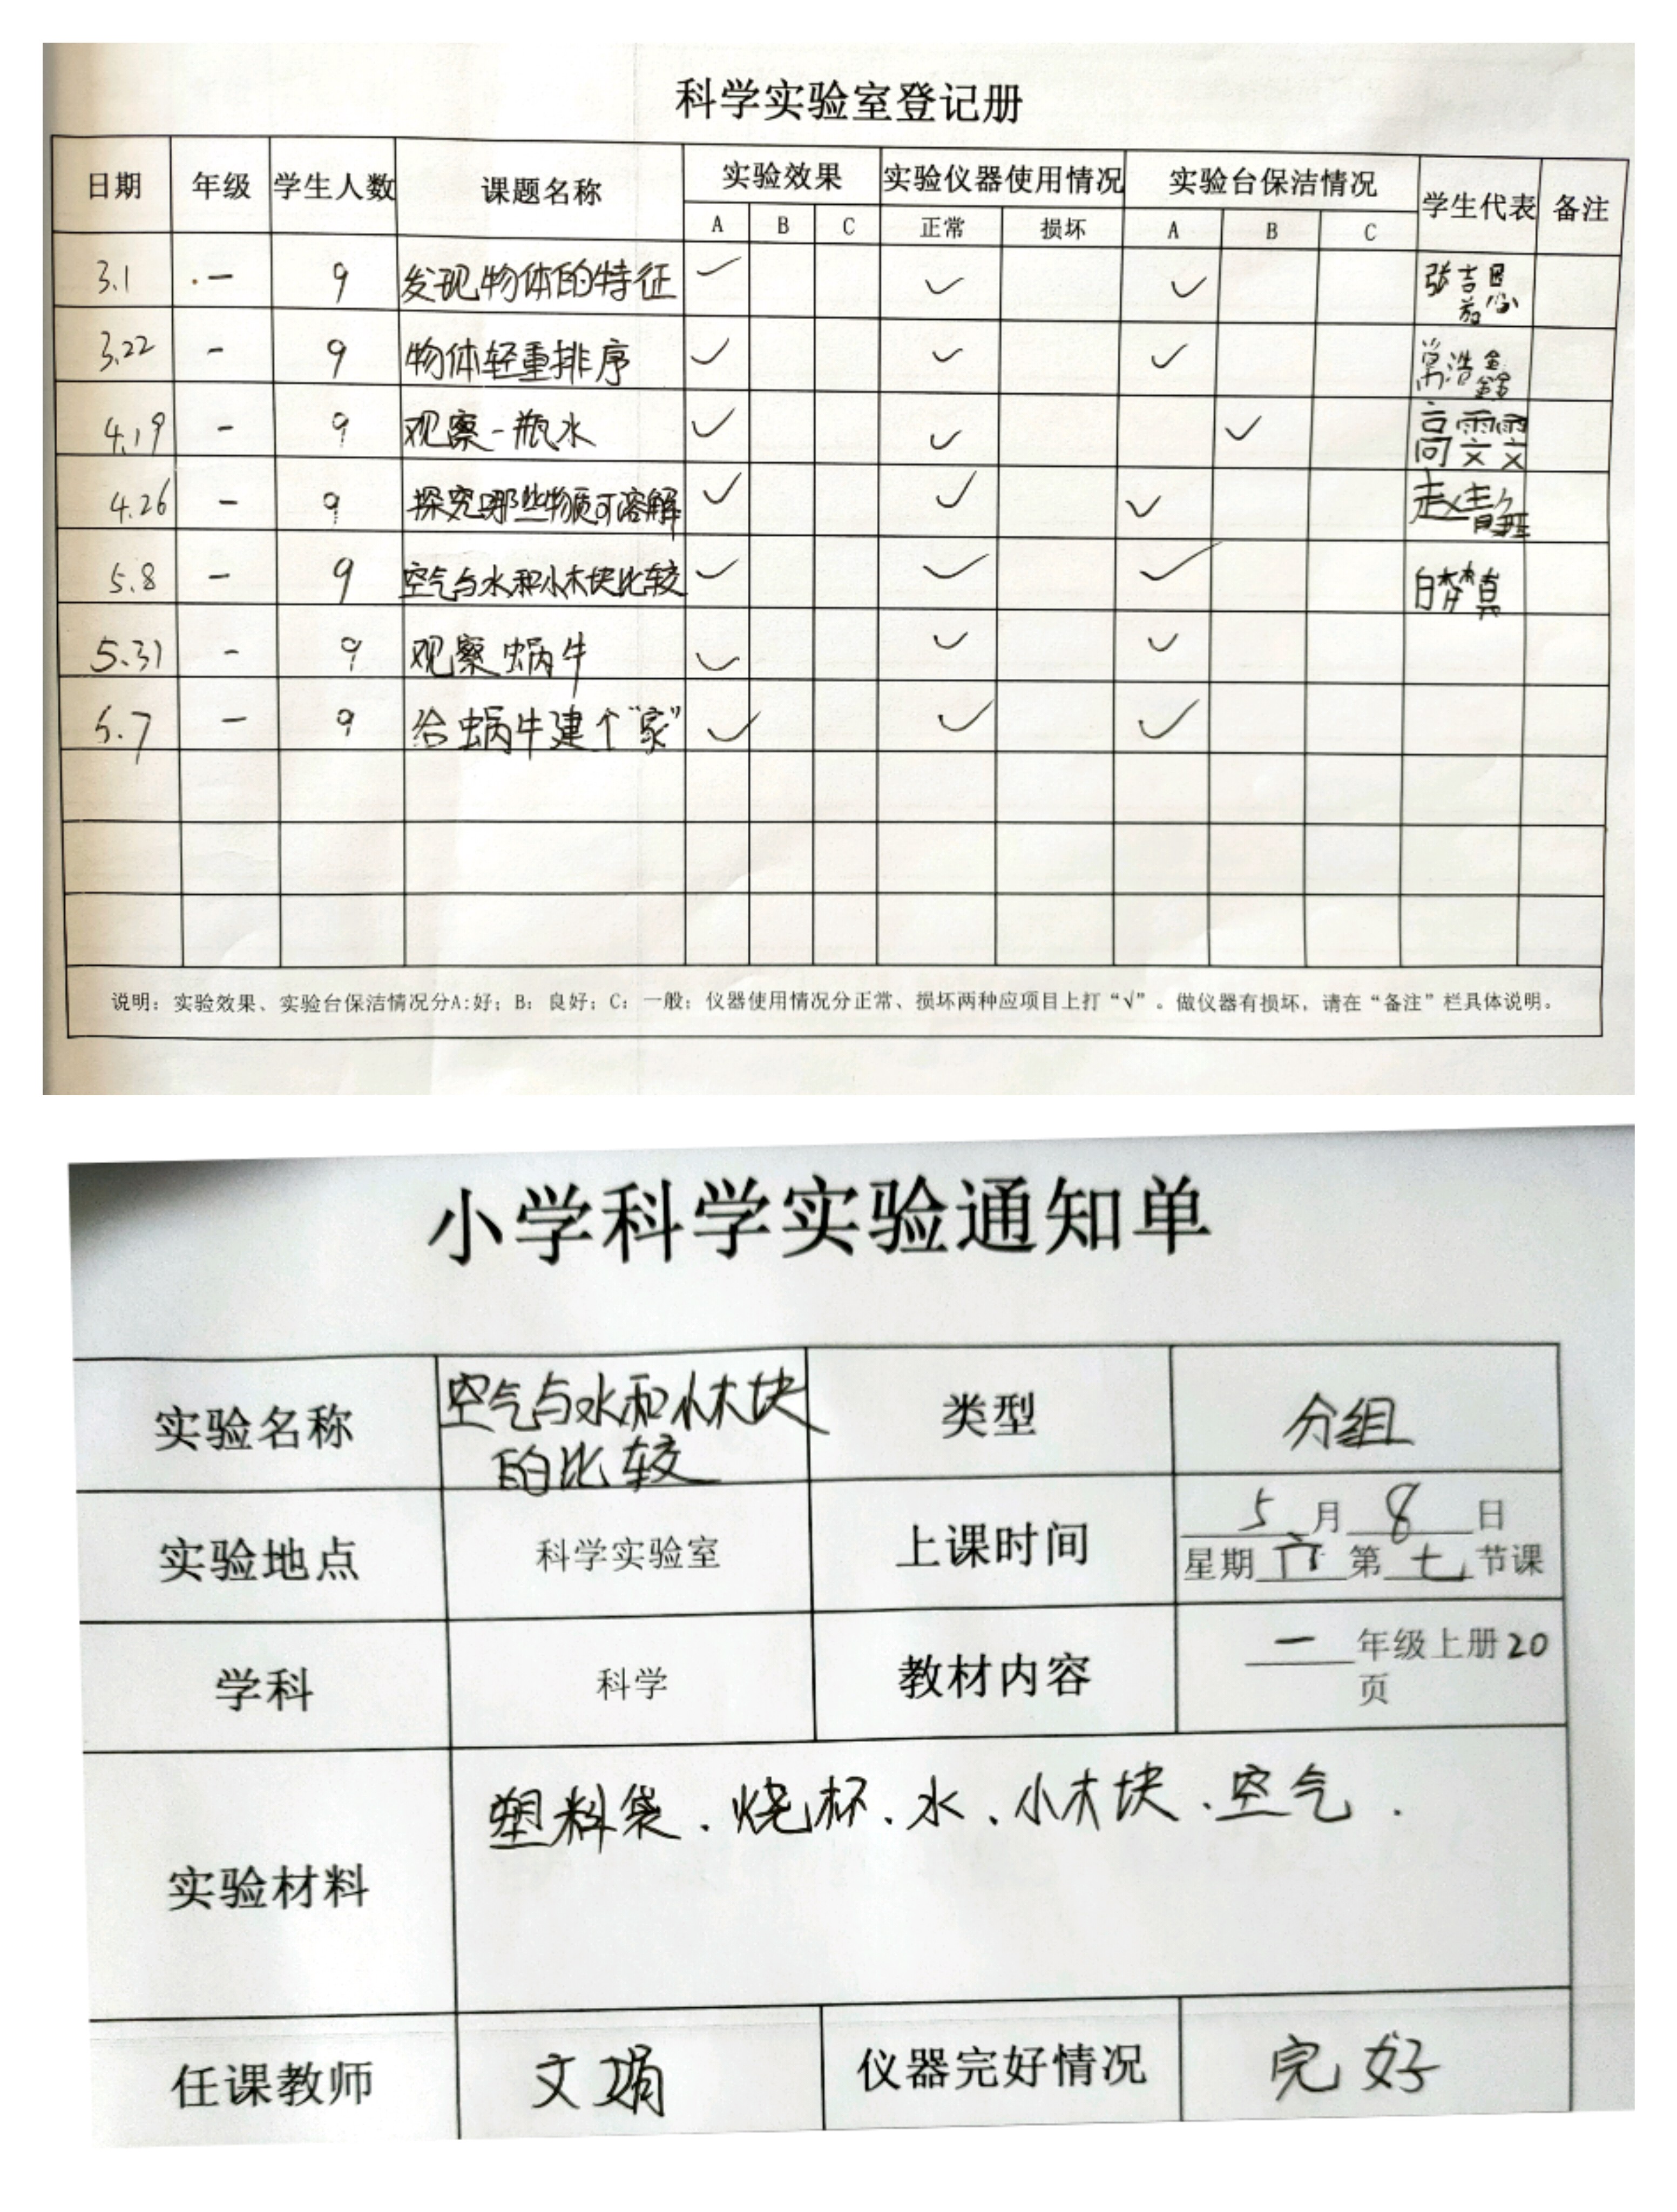 科学实验室登记册
日期 年级 学生人数 课题名称 实验效果 实验仪器使用情况 实验台保洁情况 学生代表 备注
A B C 正常 损坏 A B C
3.1 一 9 发现物体的特征 ✓ ✓ ✓ 张吉
3.22 一 9 物体轻重排序 ✓ ✓ ✓ 常浩鑫
4.19 一 9 观察一瓶水 ✓ ✓ ✓ 高雯雯
4.26 一 9 探究哪些物质可溶解 ✓ ✓ ✓ 赵
5.8 一 9 空气与水和小木块比较 ✓ ✓ ✓ 白梦真
5.31 一 9 观察蜗牛 ✓ ✓ ✓
6.7 一 9 给蜗牛建个“家” ✓ ✓ ✓
说明：实验效果、实验台保洁情况分A:好；B：良好；C：一般；仪器使用情况分正常、损坏两种应项目上打“√”。做仪器有损坏，请在“备注”栏具体说明。
小学科学实验通知单
实验名称 空气与水和小木块 类型 分组
的比较
实验地点 科学实验室 上课时间 5月8日
星期六第七节课
学科 科学 教材内容 一年级上册20
页
实验材料 塑料袋、烧杯、水、小木块、空气.
任课教师 文娟 仪器完好情况 完好